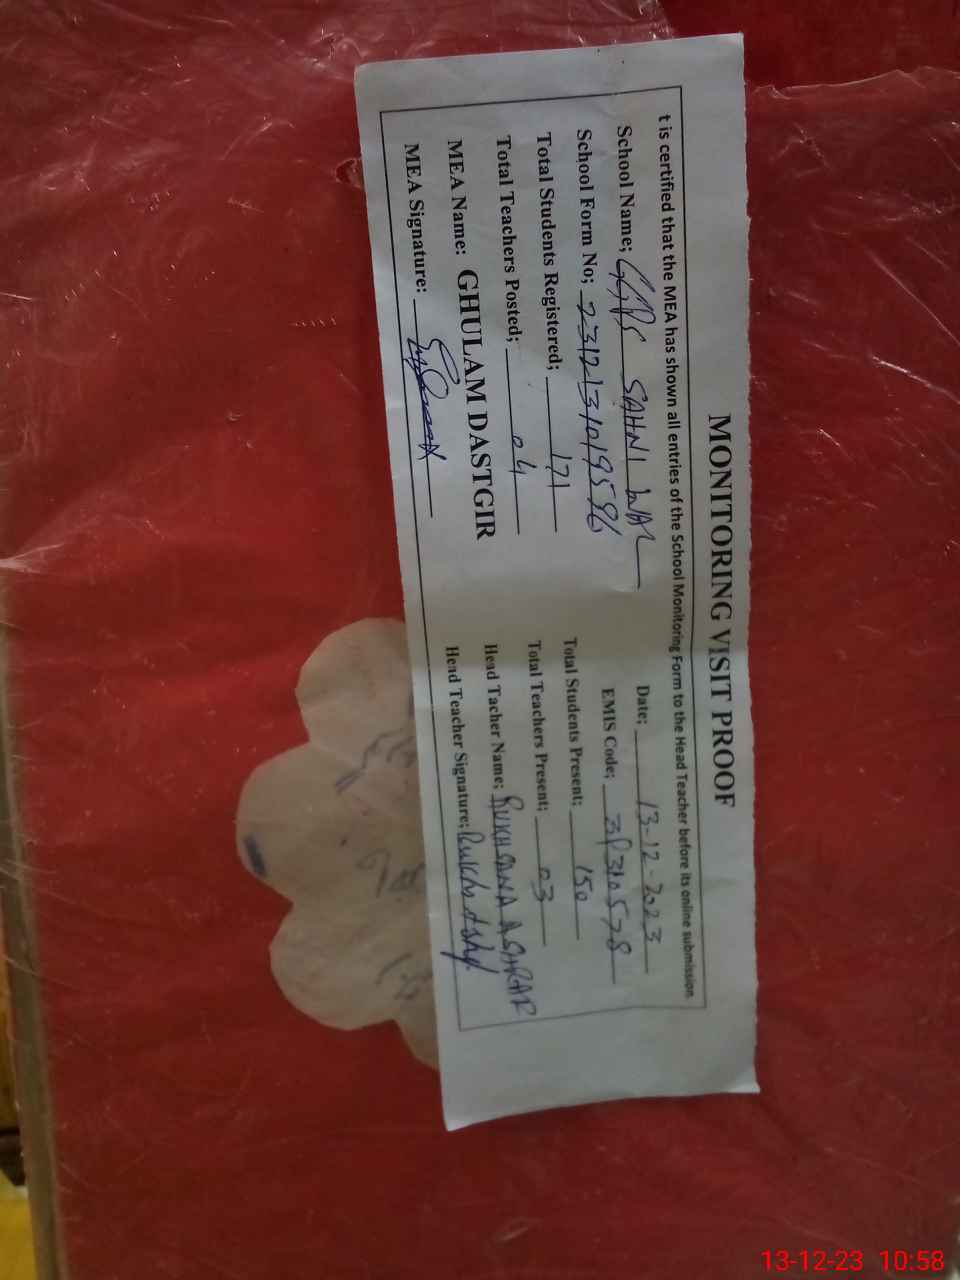 MONITORING VISIT PROOF
t is certified that the MEA has shown all entries of the School Monitoring Form to the Head Teacher before its online submission
School Name; GGPS SAHNI WAL Date; 13-12-2023
School Form No; 2312131019596 EMIS Code; 31310578
Total Students Registered; 171 Total Students Present; 150
Total Teachers Posted; 04 Total Teachers Present; 03
MEA Name: GHULAM DASTGIR Head Tacher Name; RUKHSANA ASHRAF
MEA Signature: Head Teacher Signature;
13-12-23 10:58